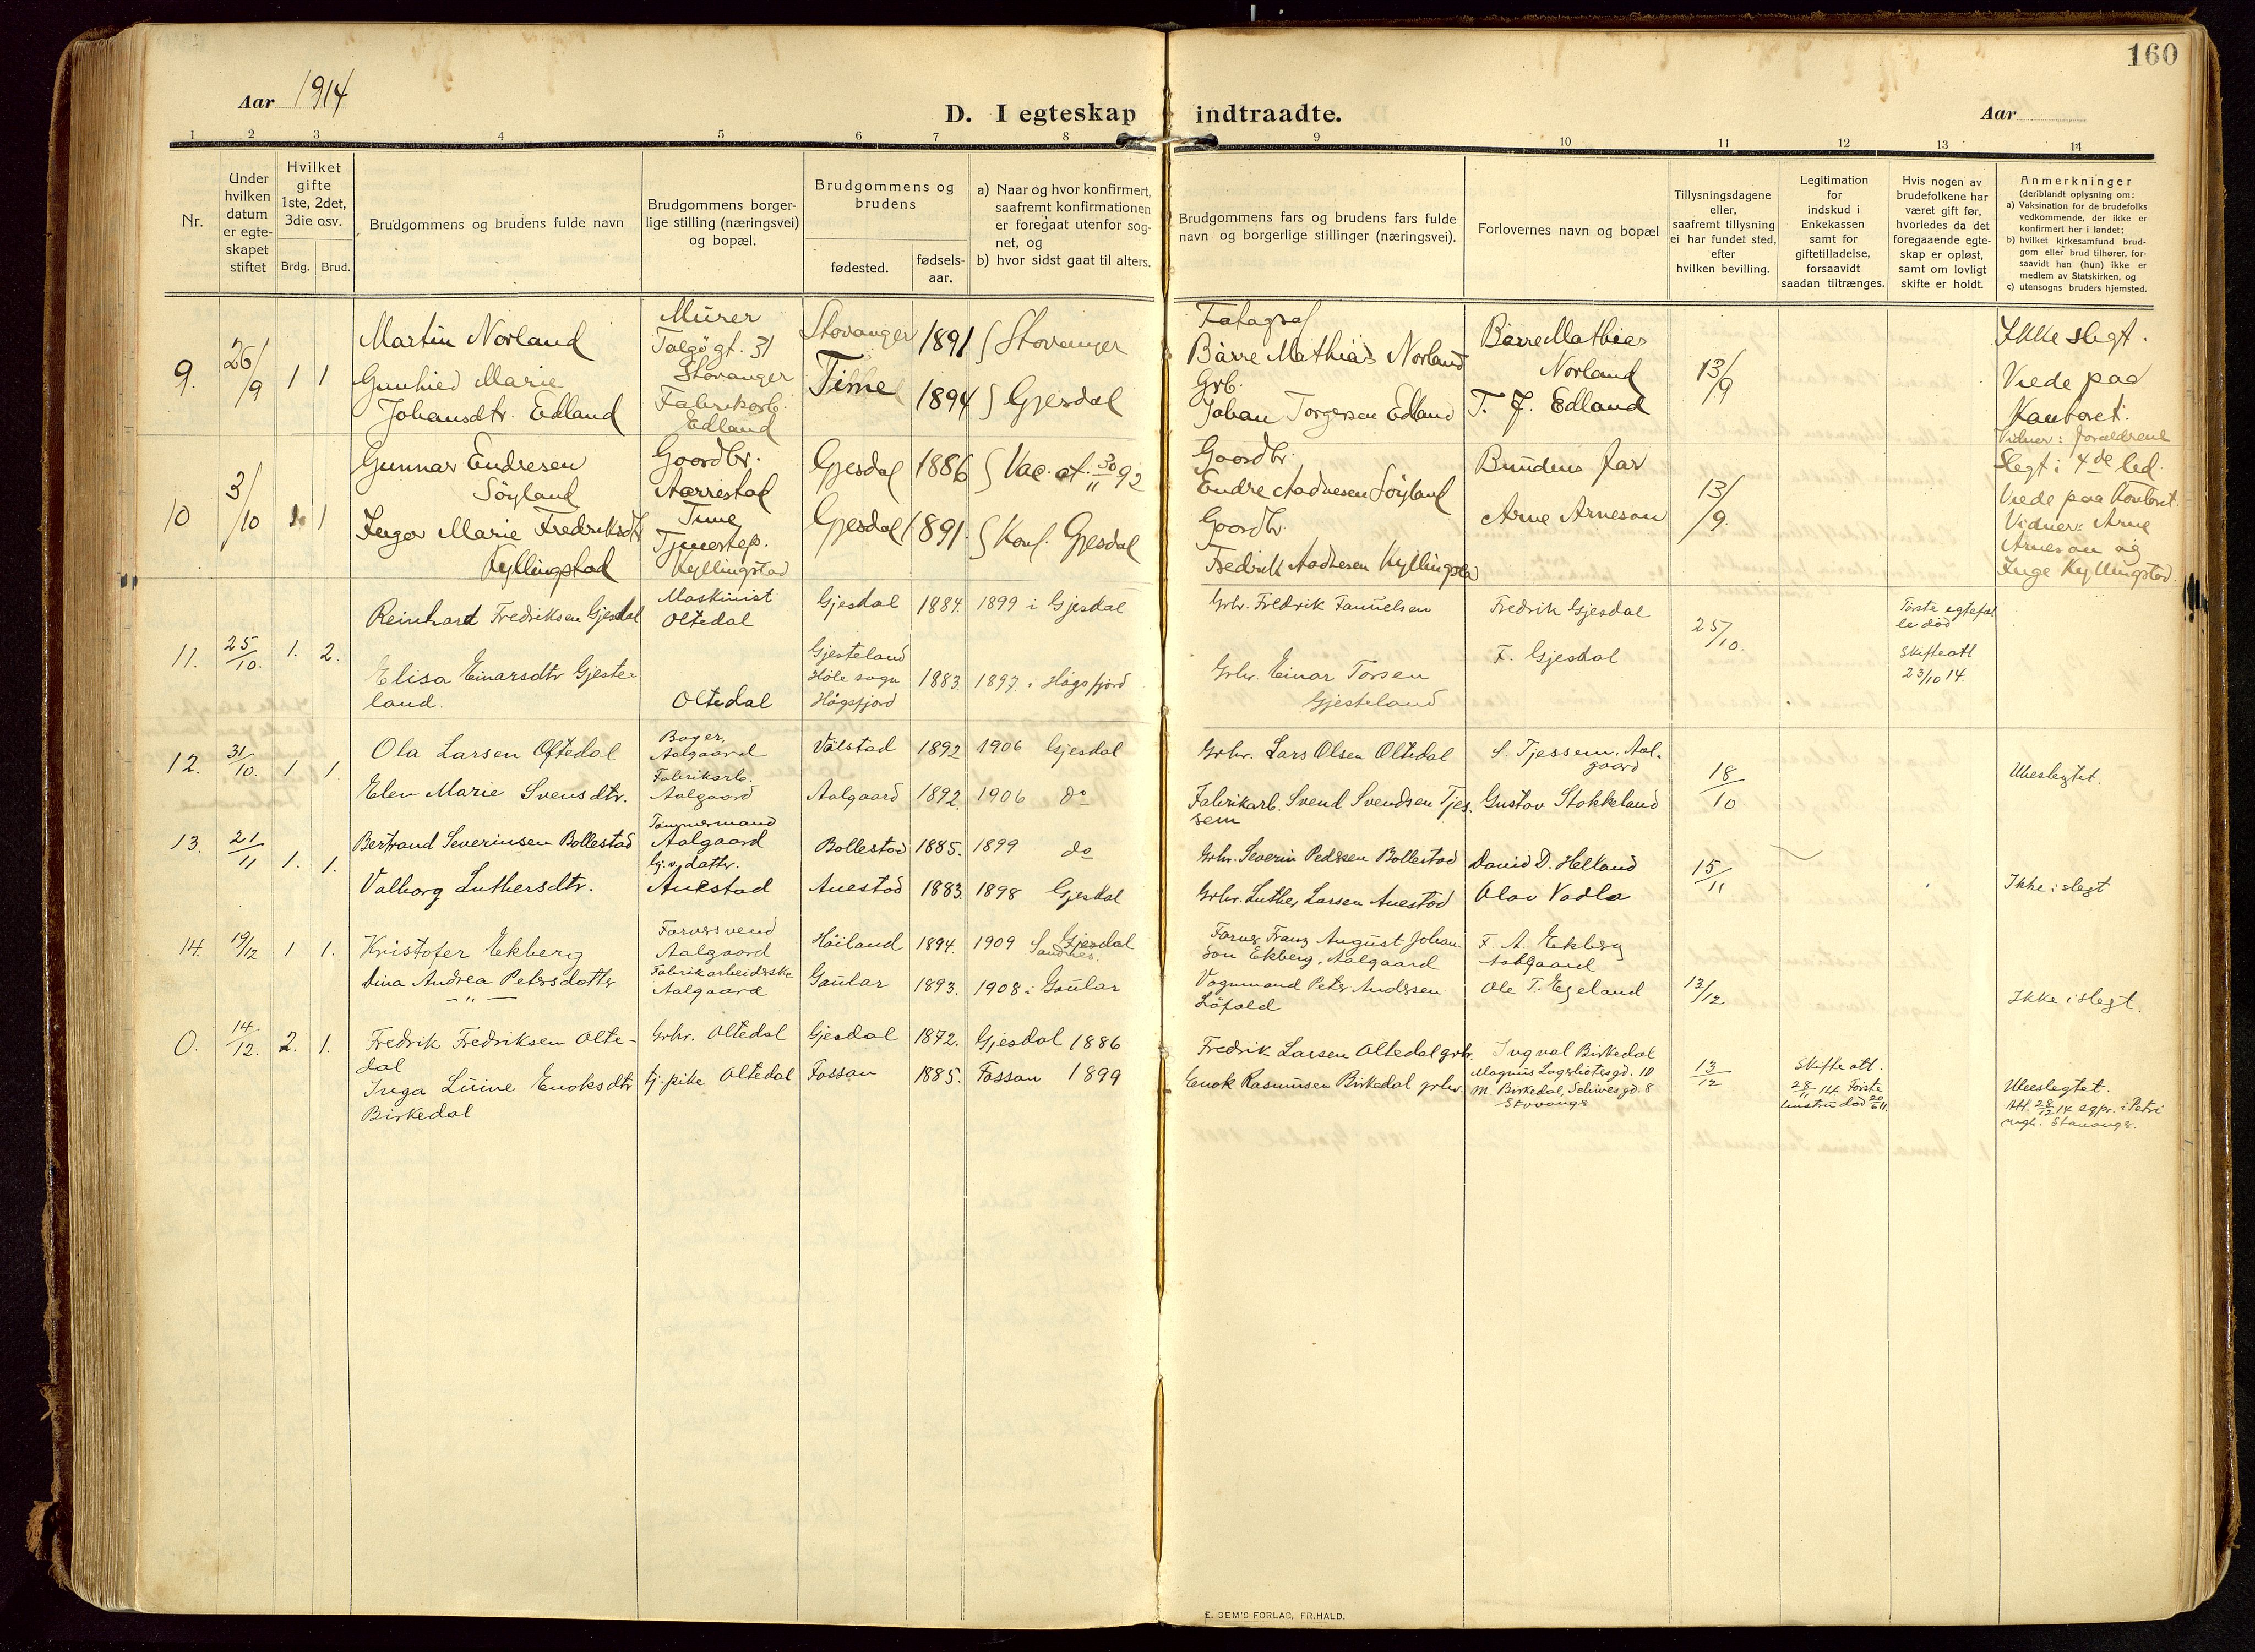 160
Aar 1914
D. I egteskap indtraadte.
Aar
1 2 3 4 5 6 7 8 9 10 11 12 13 14
Nr.
Under
hvilken
datum
er egte-
skapet
stiftet
Hvilket
gifte
1ste, 2det,
3die osv.
Brdg. Brud.
Brudgommens og brudens fulde navn
Brudgommens borger-
lige stilling (næringsvei)
og bopæl.
Brudgommens og
brudens
fødested.
fødsels-
aar.
a) Naar og hvor konfirmert,
saafremt konfirmationen
er foregaat utenfor sog-
net, og
b) hvor sidst gaat til alters.
Brudgommens fars og brudens fars fulde
navn og borgerlige stillinger (næringsvei).
Forlovernes navn og bopæl
Tillysningsdagene
eller,
saafremt tillysning
ei har fundet sted,
efter
hvilken bevilling.
Legitimation
for
indskud i
Enkekassen
samt for
giftetilladelse,
forsaavidt
saadan tiltrænges.
Hvis nogen av
brudefolkene har
været gift før,
hvorledes da det
foregaaende egte-
skap er opløst,
samt om lovligt
skifte er holdt.
Anmerkninger
(deriblandt oplysning om:
a) Vaksination for de brudefolks
vedkommende, der ikke er
konfirmert her i landet;
b) hvilket kirkesamfund brud-
gom eller brud tilhører, for-
saavidt han (hun) ikke er
medlem av Statskirken, og
c) utensogns bruders hjemsted.
9. 26/9 1 1
Martin Norland
Gunhild Marie
Johansdtr. Edland
Murer
Talgögt. 31
Stavanger
Fabrikarb.
Edland
Stavanger 1891 Stavanger
Time 1894 Gjesdal
Fotograf
Börre Mathias Norland
Grb.
Johan Torgersen Edland
Börre Mathias
Norland
T. J. Edland
13/9
Ikke slegt.
Viede paa
Kontoret.
Vidner: Foraeldrene
10 3/10 1 1
Gunnar Endresen
Söyland
Inger Marie Fredriksdtr
Kyllingstad
Gaardbr.
Aarrestad
Time
Tjenestep.
Kyllingstad
Gjesdal 1886 Vac. at. 30/11 92
Gjesdal 1891. Konf. Gjesdal
Gaardbr.
Endre Aadnesen Söyland
Gaardbr.
Fredrik Aadnesen Kyllingstad
Brudens far
Arne Arneson
13/9.
Slegt i 4de led.
Viede paa Kontoret.
Vidner: Arne
Arneson og
Inge Kyllingstad.
11. 25/10. 1. 2.
Reinhart Fredriksen Gjesdal
Elisa Einarsdtr Gjeste-
land.
Maskinist
Oltedal
Oltedal
Gjesdal 1884. 1899 i Gjesdal
Gjesteland
Høle sogn
Høgsfjord
1883. 1897. i Høgsfjord
Grbr. Fredrik
Grbr. Einar Torsen
Gjesteland
Fredrik Gjesdal
F. Gjesdal
25/10.
Første egtefæl
le død
Skifteatt
23/10 14.
12. 31/10. 1 1.
Ola Larsen Oftedal
Elen Marie Svensdtr.
Bager,
Aalgaard
Fabrikarb.
Aalgaard
1892 1906 Gjesdal
Aalgaard 1892. 1906 do
Grbr. Lars Olsen Oltedal
Fabrikarb. Svend Svendsen Tjes-
sem
S. Tjessem, Aal-
gaard
Gustav Stokkeland
18/10
Ubeslegtet.
13. 21/11 1. 1.
Bertrand Severinsen Bollestad
Valborg Luthersdtr.
Tömmermand
Aalgaard
Auestad
Bollestad 1885. 1899 do
Auestad 1883. 1898 Gjesdal
Grbr. Severin Pedersen Bollestad
Grbr. Luther Larsen Auestad
David D. Helland
Olav Vadla
15/11
Ikke i slegt
14. 19/12 1 1.
Kristofer Ekberg
Dina Andrea Petersdatter
— " —
Farversvend
Aalgaard
Fabrikarbeiderske
Aalgaard
Høiland 1894. 1909 Gjesdal
Sandnes.
Gaular 1893. 1908 i Gaular
Farver Franz August Johan-
son Ekberg, Aalgaard
Vognmand Peter Andersen
Löfald
F. A. Ekberg
Aalgaard
Ole T. Egeland
13/12
Ikke i slegt.
0. 14/12. 2. 1.
Fredrik Fredriksen Olte-
dal
Inga Luine Enoksdtr
Birkedal
Grbr. Oltedal
tj.pike Oltedal
Gjesdal 1872. Gjesdal 1886
Fossan 1885. Fossan 1899
Fredrik Larsen Oltedal grbr.
Enok Rasmussen Birkedal grbr.
Ingval Birkedal
Magnus Lagabøtesgd. 10
M. Birkedal,
Stavanger
13/12
Skifte att.
28/11 14. Første
hustru død 20/6 11
Ubeslegtet.
Att. 28/12 14 egpr. i Petri
mgh. Stavanger.
E. SEM'S FORLAG, FR.HALD.